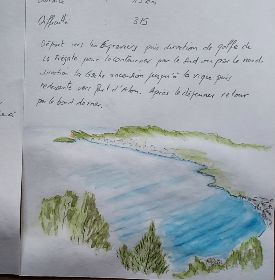 Difficulté 3/5
Départ vers les Engraviers puis direction du golfe de
La Frégate pour le contourner par le sud ou par le nord
direction la Gâche vacation jusqu'à la vigne puis
redescente vers Port d'Alon. Après le déjeuner retour
par le bord de mer.